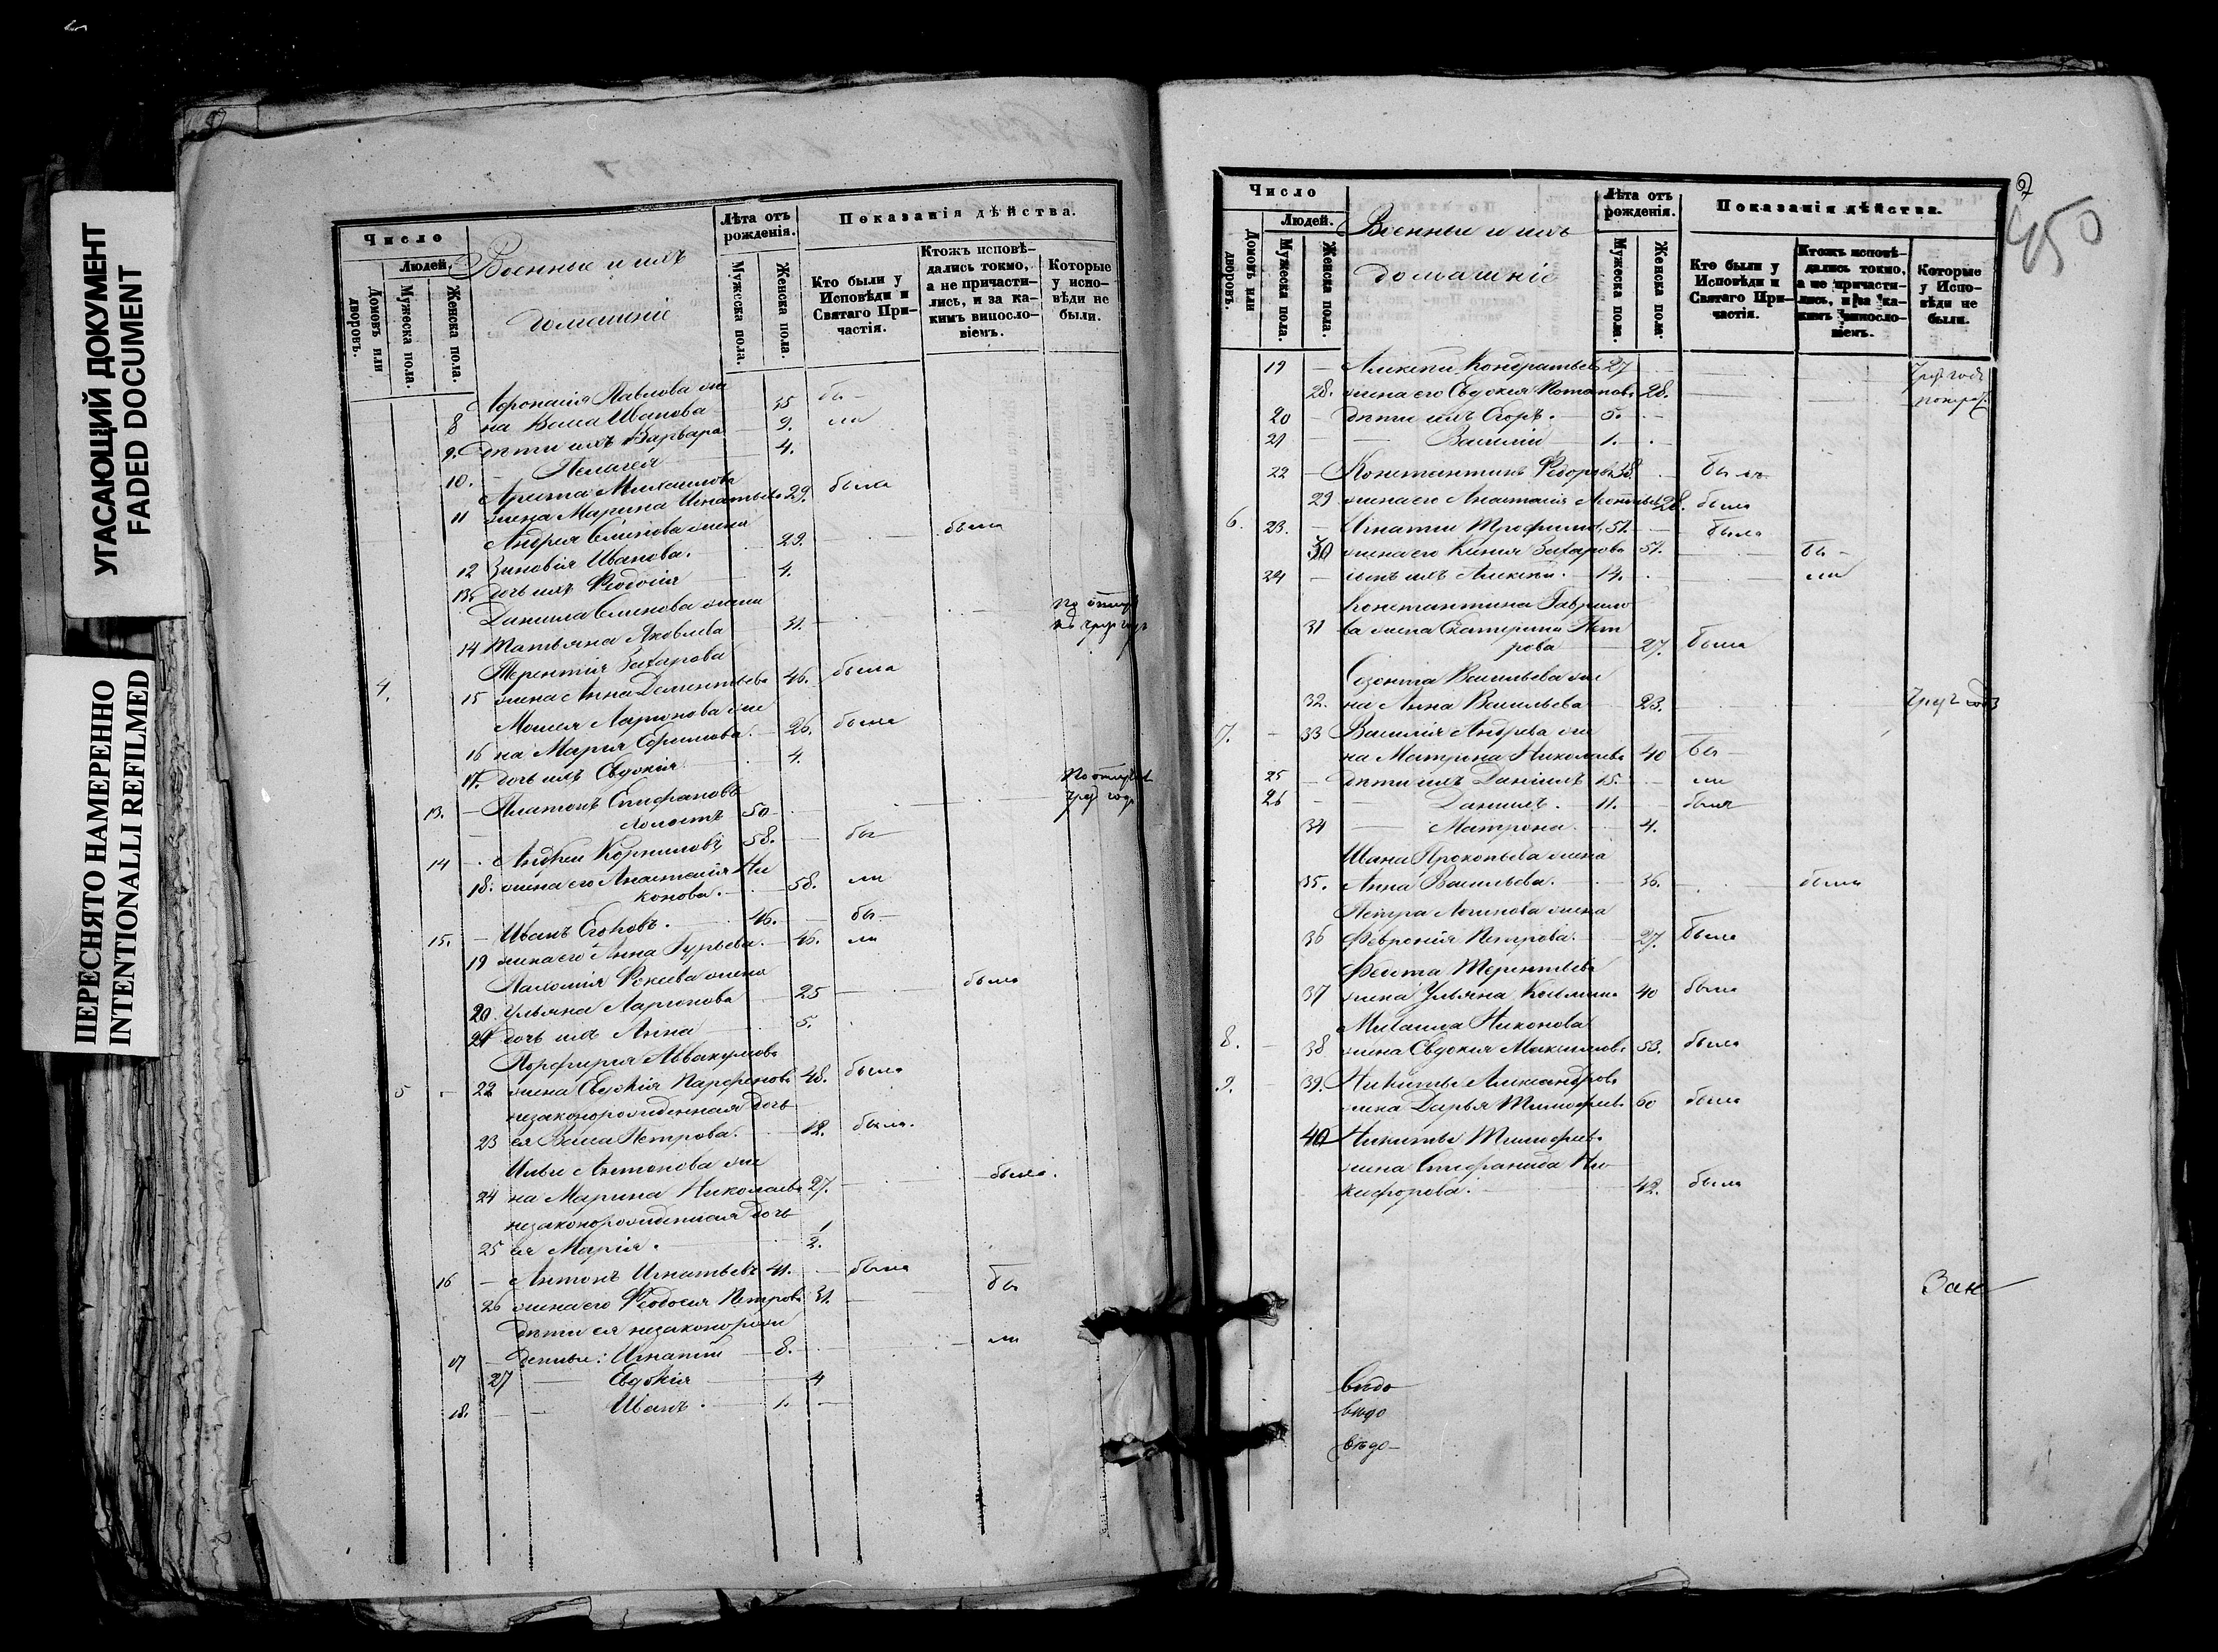 УГАСАЮЩИЙ ДОКУМЕНТ
FADED DOCUMENT
ПЕРЕСНЯТО НАМЕРЕННО
INTENTIONALLI REFILMED
Число
Людей
Домовъ или дворовъ.
Мужеска пола.
Женска пола.
Военные и ихъ
домашніе
Лѣта отъ рожденія.
Мужеска пола.
Женска пола.
Показанія дѣйства.
Кто были у Исповѣди и Святаго Причастія.
Ктожъ исповѣдались токмо, а не причастились, и за какимъ винословіемъ.
Которые у исповѣди не были.
Павлова же
8 на Васса Иванова 35 бы
9. дѣти ихъ Варвара 9. ли
10. Пелагея 4.
Михаилова
11 жена Марина Игнатьева 29. была
Андрея Семенова жена
12 Зиновія Иванова. 29. была
13. дочь ихъ Феодосія 4.
Данила Семенова жена
14 Татьяна Яковлева 31.
Терентія Захарова
4. 15 жена Анна Дементьева 46. была
Моисея Ларіонова же
16 на Марія Ефимова. 26. была
17. дочь ихъ Евдокія 4.
13. Платонъ Епифановъ
холостъ 50
14 Андрей Корниловъ 58. бы
18. жена его Анастасія Ни
конова. 58. ли
15. Иванъ Егоровъ. 46. бы
19 жена его Анна Гурьева. 46. ли
Пахомія Фокеева жена
20 Ульяна Ларіонова 25 была
21 дочь ихъ Анна 5.
Порфирія Аввакумова
5 22 жена Евдокія Парфенова 48. была
незаконорожденная дочь
23 ея Васса Петрова. 12. была.
Ильи Антонова же
24 на Марина Николаева 27. была.
незаконорожденная дочь
25 ея Марія. 1/2.
16 Антонъ Игнатьевъ 41. была
26 жена его Феодосія Петрова 31. бы
дѣти ея незаконорож
17 денные: Игнатій 8. ли
27 Евдокія 4
18. Иванъ. 1.
450
Число
Людей.
Домовъ или дворовъ.
Мужеска пола.
Женска пола.
Военные и ихъ
домашніе
Лѣта отъ рожденія.
Мужеска пола.
Женска пола.
Показанія дѣйства.
Кто были у Исповѣди и Святаго Причастія.
Ктожъ исповѣдались токмо, а не причастились, и за какимъ винословіемъ.
Которые у Исповѣди не были.
19 Алексѣй Кондратьевъ 27
28. жена его Евдокія Потапова 28.
20 дѣти ихъ Егоръ. 5.
21 Василій 1.
22 Константинъ Федоровъ 38. былъ
29 жена его Анастасія 28. была
6. 23. Игнатій Трофимовъ 51. была
30 жена его Ксенія Захарова 51. бы
24 сынъ ихъ Алексѣй. 14. ли
Константина Гаврило
31 ва жена Екатерина Пет
рова 27. была
Созонта Васильева же
32. на Анна Васильева 23.
7. 33 Василія Андреева же
на Матрена Николаева 40 бы
25 дѣти ихъ Даніилъ 15. ли
26 Даніилъ. 11. были
34 Матрона. 4.
Ивана Прокопьева жена
35. Анна Васильева. 36. была
Петра Логинова жена
36 Февронія Петрова. 27. была
Федота Терентьева
37 жена Ульяна Козьмина 40 была
Михаила Никонова
8. 38 жена Евдокія Максимова 53. была
9. 39. Никиты Александрова
жена Дарья Тимофеева 60 была
40 Никиты Тимофеева
жена Епифанида Ни
кифорова. 42. была